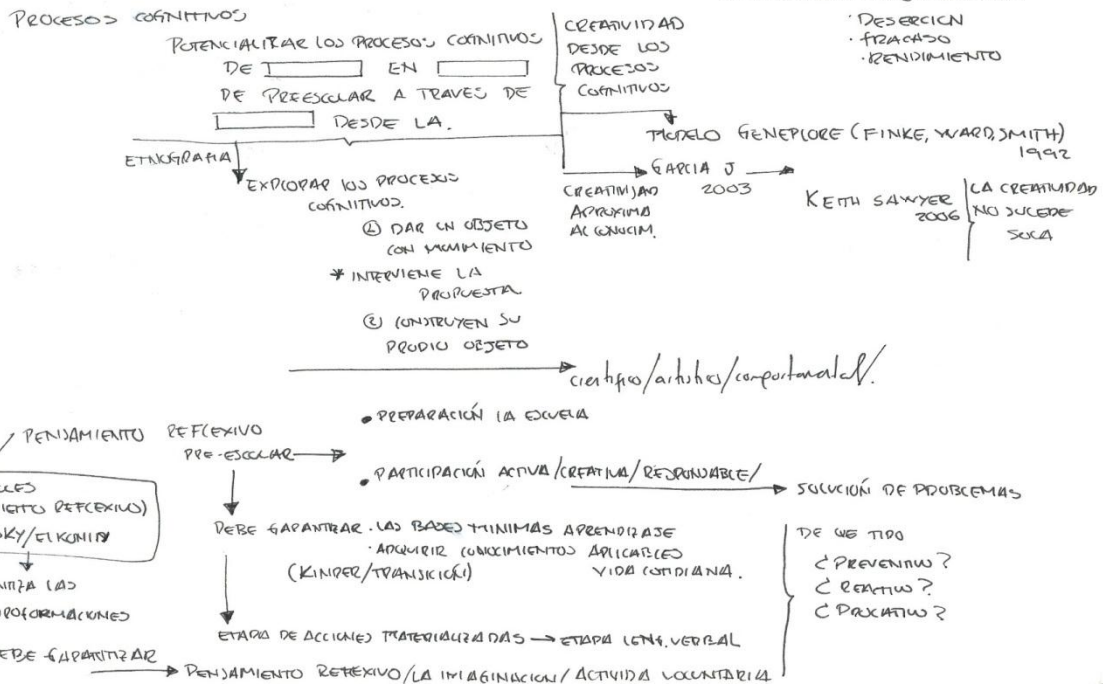 PROCESOS COGNITIVOS
POTENCIALIZAR LOS PROCESOS COGNITIVOS
DE EN
DE PREESCOLAR A TRAVES DE
DESDE LA.
CREATIVIDAD
DESDE LOS
PROCESOS
COGNITIVOS
· DESERCION
· FRACASO
· RENDIMIENTO
MODELO GENEPLORE (FINKE, WARD, SMITH)
1992
ETNOGRAFIA
EXPLORAR LOS PROCESOS
COGNITIVOS.
GARCIA J
2003
CREATIVIDAD
APROXIMA
AL CONOCIM.
KEITH SAWYER
2006
LA CREATIVIDAD
NO SUCEDE
SOLA
① DAR UN OBJETO
CON MOVIMIENTO
* INTERVIENE LA
PROPUESTA
② CONSTRUYEN SU
PROPIO OBJETO
cientifico/artistico/comportamental/.
PENSAMIENTO REFLEXIVO
PRE-ESCOLAR
• PREPARACIÓN LA ESCUELA
• PARTICIPACIÓN ACTIVA/CREATIVA/RESPONSABLE/
SOLUCIÓN DE PROBLEMAS
REFLEXIVO)
SKY/ELKONIN
LAS
DEBE GARANTIZAR · LAS BASES MINIMAS APRENDIZAJE
· ADQUIRIR CONOCIMIENTOS APLICABLES
(KINDER/TRANSICIÓN) VIDA COTIDIANA.
DE QUE TIPO
¿PREVENTIVO?
¿REACTIVO?
ETAPA DE ACCIONES MATERIALIZADAS → ETAPA LENG. VERBAL
GARANTIZAR
PENSAMIENTO REFLEXIVO/LA IMAGINACION/ACTIVIDA VOLUNTARIA